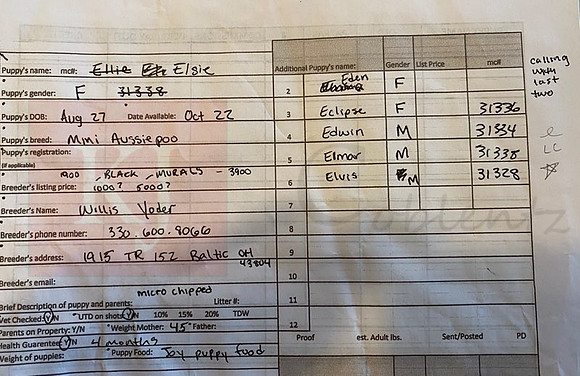 Puppy's name: mc#: Ellie Elsie
Puppy's gender: F 31338
Puppy's DOB: Aug 27 Date Available: Oct 22
Puppy's breed: Mini Aussiepoo
Puppy's registration:
(if applicable)
1900 - BLACK - MURALS - 3900
Breeder's listing price: 1000? 5000?
Breeder's Name: Willis Yoder
Breeder's phone number: 330.600.8066
Breeder's address: 1915 TR 152 Baltic OH
43804
Breeder's email:
micro chipped
Brief Description of puppy and parents: Litter#:
Vet Checked: Y/N *UTD on shots Y/N 10% 15% 20% TDW
Parents on Property: Y/N *Weight Mother: 45 *Father:
Health Guarantee Y/N 4 months
Weight of puppies: *Puppy Food: Joy puppy food
Additional Puppy's name: Gender List Price mc#
2 Eden F
3 Eclipse F 31336
4 Edwin M 31334
5 Elmar M 31338
6 Elvis M 31328
7
8
9
10
11
12
Proof est. Adult lbs. Sent/Posted PD
calling
with
last
two
e
LC